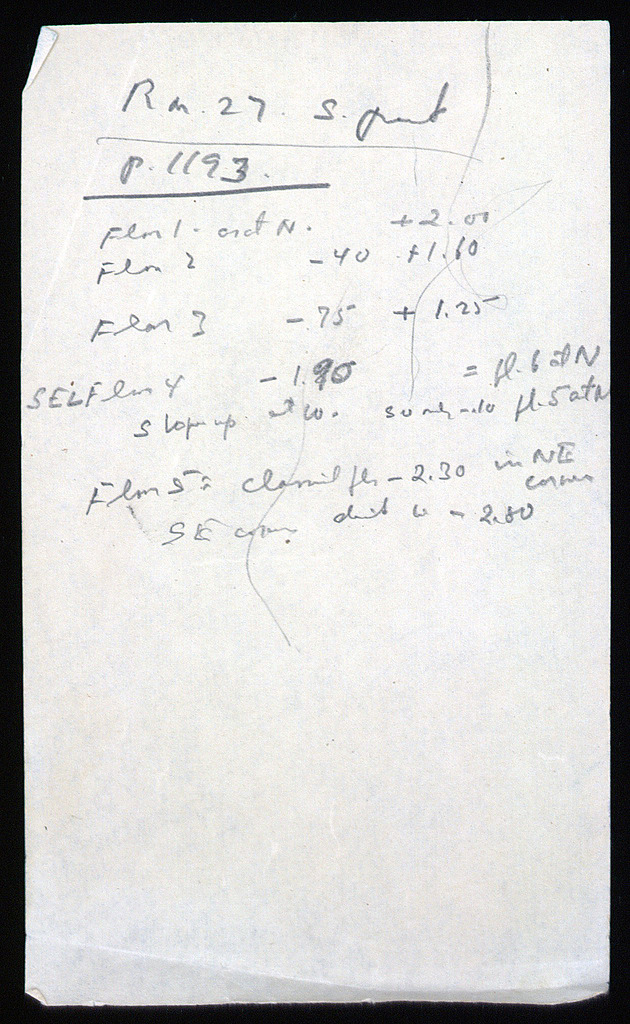 Rm. 27. S. part
p. 1193.
Floor 1. at N. +2.00
Floor 2 -40 +1.60
Floor 3 -.75 + 1.25
SE Floor 4 -1.90 = fl. 6 at N
Slope up at W. fl. 5 at N
Floor 5 = -2.30 in NE
corner
SE corner W - 2.80